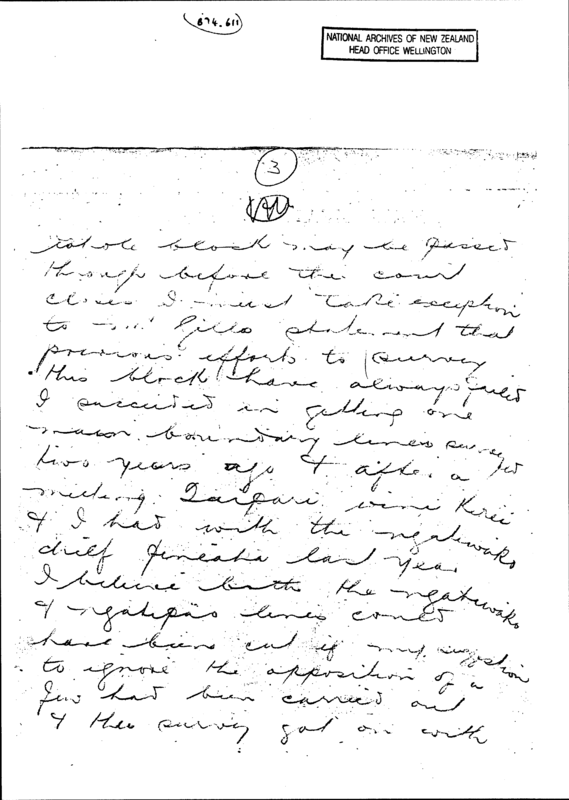 874.611
NATIONAL ARCHIVES OF NEW ZEALAND
HEAD OFFICE WELLINGTON
3
whole block may be passed
through before the court
closes I must take exception
to Mr Gills statement that
previous efforts to survey
this block have always failed
I succeeded in getting one
main boundary line surveyed
two years ago & after a
meeting Taipari Wini Kerei
& I had with the ngatiwako
chief last year
I believe both the ngatiwako
& ngatipao lines could
have been cut if my suggestion
to ignore the opposition of a
few had been carried out
& the survey got on with